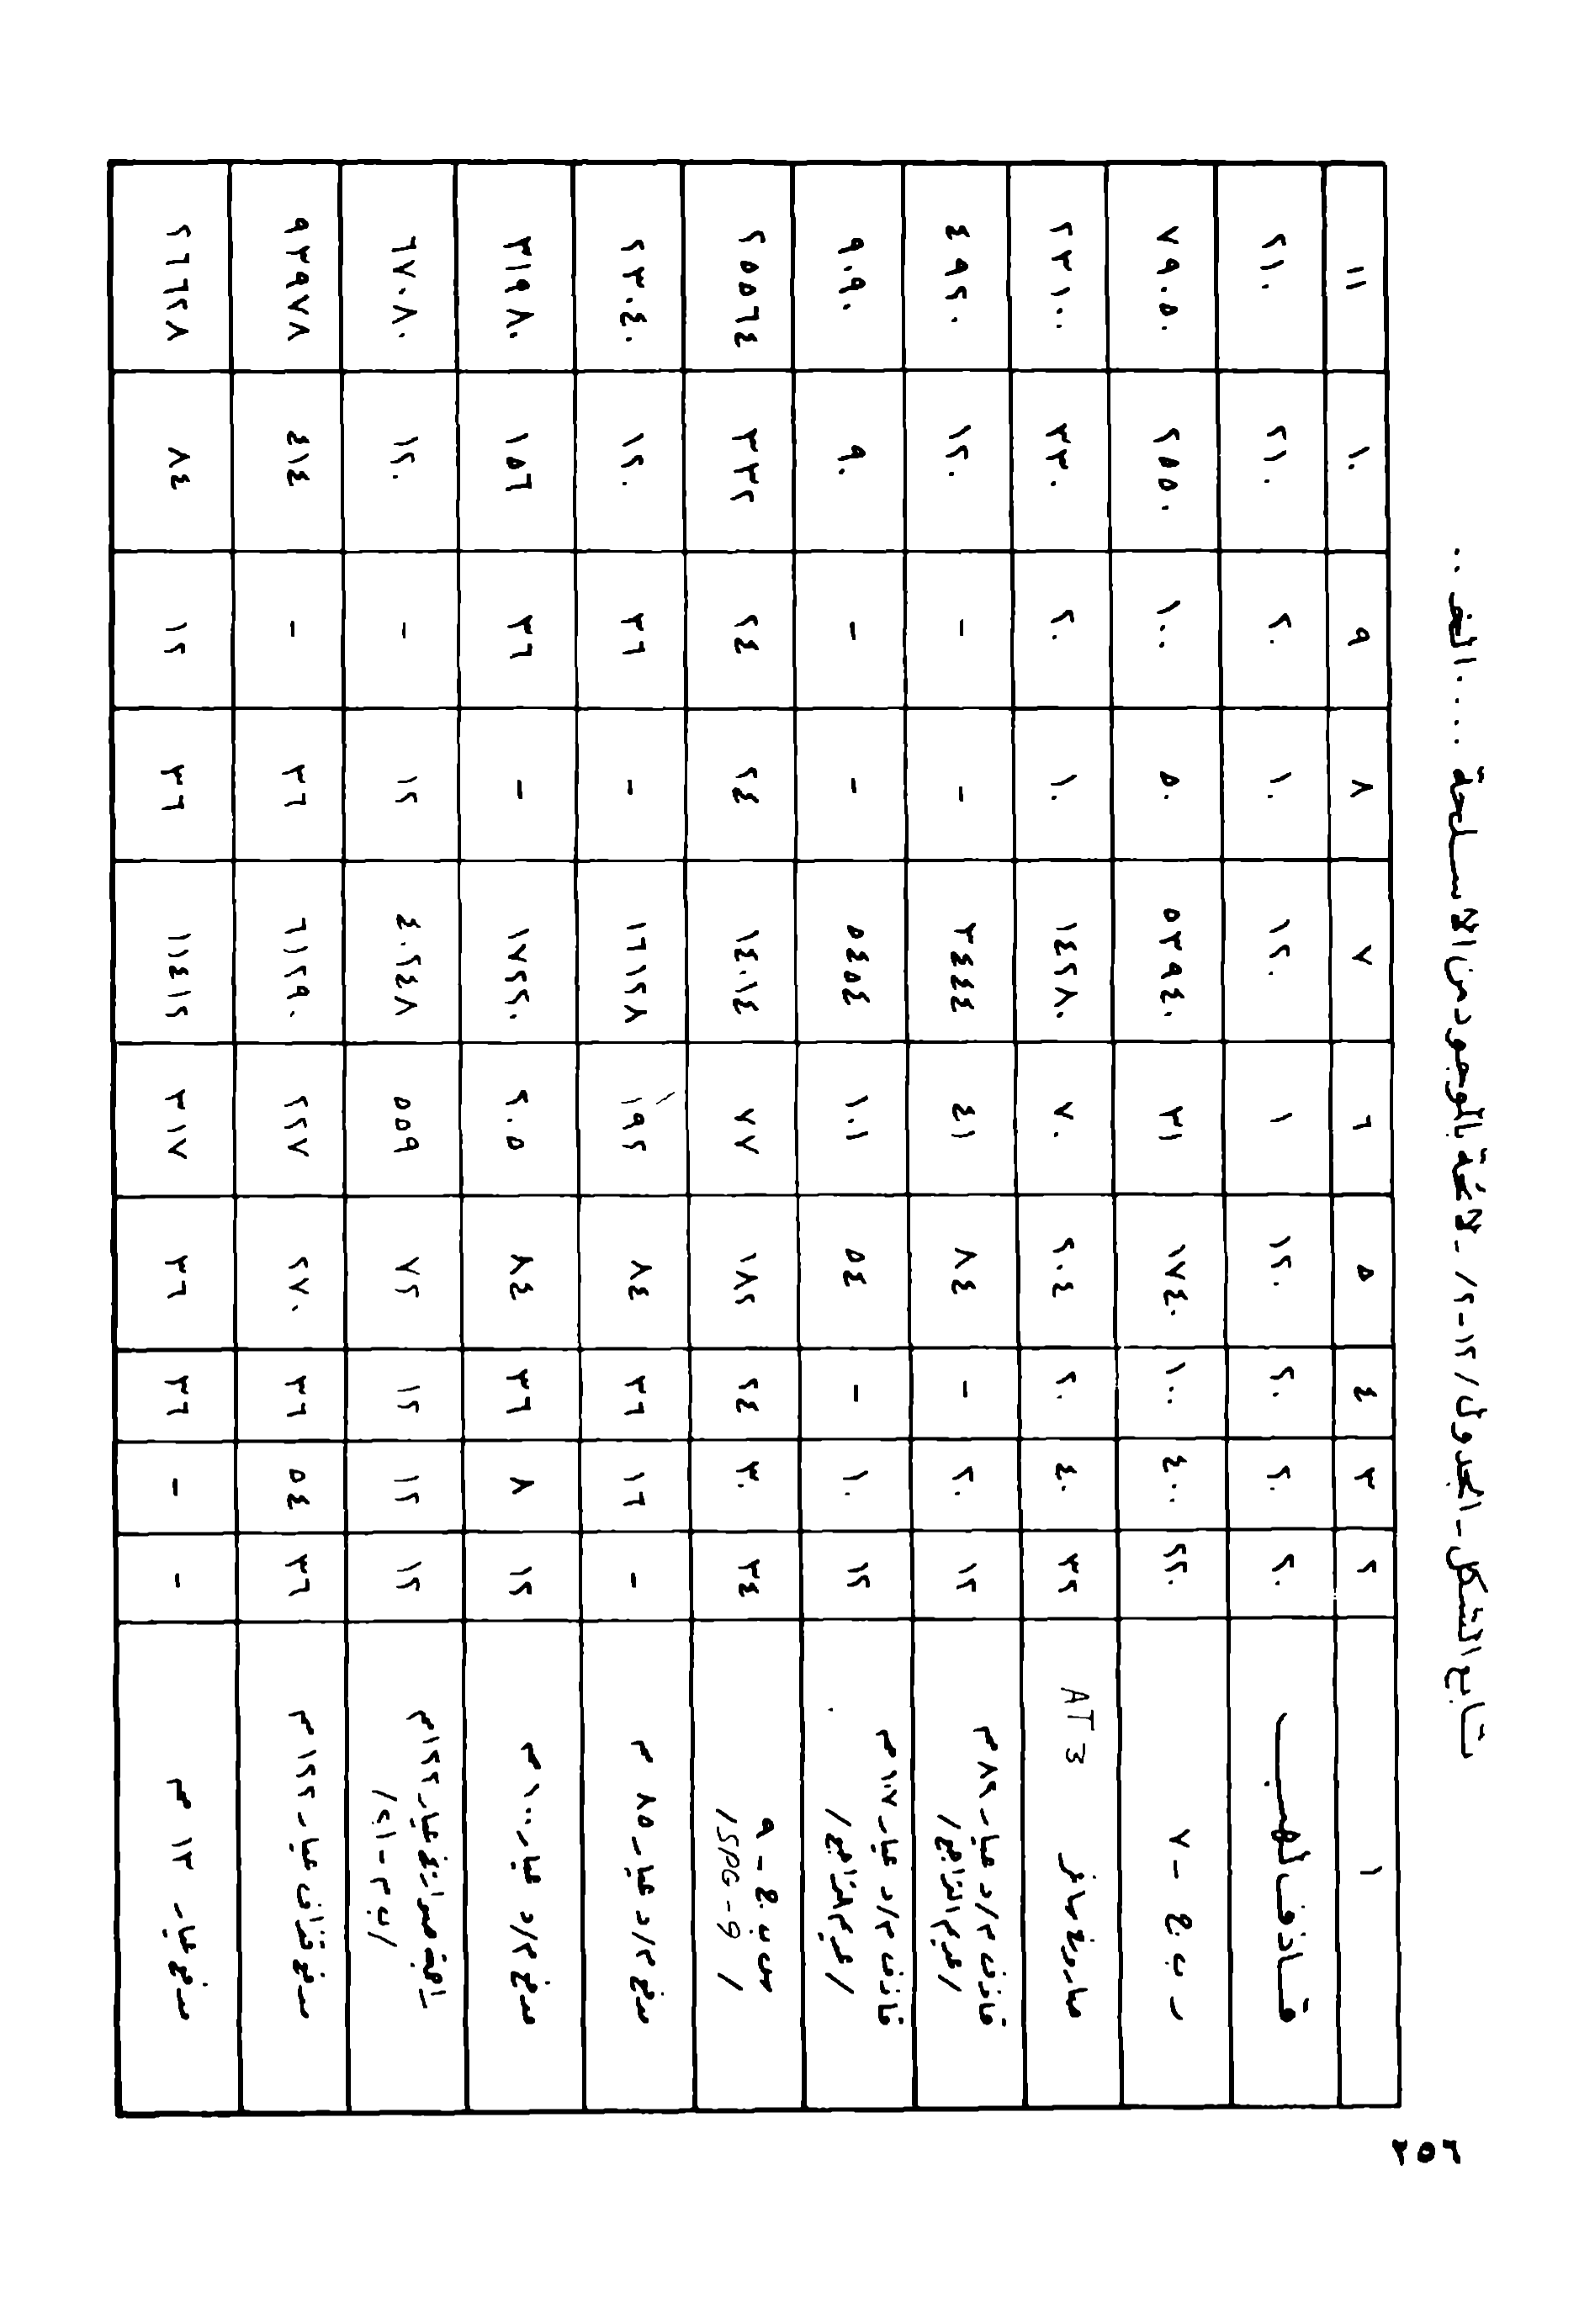 تابع الشكل - الجدول /١٢-٢/ - لائحة بالموجود من الاسلحة .... الخ ..
١ ٢ ٣ ٤ ٥ ٦ ٧ ٨ ٩ ١٠ ١١
قاذف لهب ٢٠ ٢٠ ٢٠ ١٢٠ ١ ١٢٠ ١٠ ٢٠ ٢١٠ ٢١٠
ر ب ج - ٧ ٢٢٠ ٤٠٠ ١٠٠ ١٧٤٠ ٣١ ٥٣٩٤٠ ٥٠ ١٠٠ ٢٥٥٠ ٧٩٠٥٠
صاروخ صاغر AT 3 ٣٢ ٤٠ ٢٠ ٢٠٤ ٧٠ ١٤٢٨٠ ١٠ ٢٠ ٣٣٠ ٢٣١٠٠
قاذف م/د عيار ٨٢ م
/عديم التراجع/ ١٢ ٢٠ - ٨٤ ٤١ ٣٤٤٤ - - ١٢٠ ٤٩٢٠
قاذف م/د عيار ١٠٧ م
/عديم التراجع/ ١٢ ١٠ - ٥٤ ١٠١ ٥٤٥٤ - - ٩٠ ٩٠٩٠
س ب ج - ٩
/SPG-9/ ٣٤ ٣٠ ٢٤ ١٨٢ ٧٧ ١٤٠١٤ ٢٤ ٢٤ ٣٣٢ ٢٥٥٦٤
مدفع م/د عيار ٨٥ م - ١٦ ٣٦ ٨٤ ١٩٢ ١٦١٢٨ - ٣٦ ١٢٠ ٢٣٠٤٠
مدفع م/د عيار ١٠٠ م ١٢ ٨ ٣٦ ٨٤ ٢٠٥ ١٧٢٢٠ - ٣٦ ١٥٦ ٣١٩٨٠
راجمة صواريخ عيار ١٢٢ م
/ب م - ٢١/ ١٢ ١٢ ١٢ ٧٢ ٥٥٩ ٤٠٢٤٨ ١٢ - ١٢٠ ٦٧٠٨٠
مدفع قذاف عيار ١٢٢ م ٣٦ ٥٤ ٣٦ ٢٧٠ ٢٢٧ ٦١٢٩٠ ٣٦ - ٤١٤ ٩٣٩٧٨
مدفع عيار ١٣٠ م - - ٣٦ ٣٦ ٣١٧ ١١٤١٢ ٣٦ ١٢ ٨٤ ٢٦٦٢٨
٢٥٦